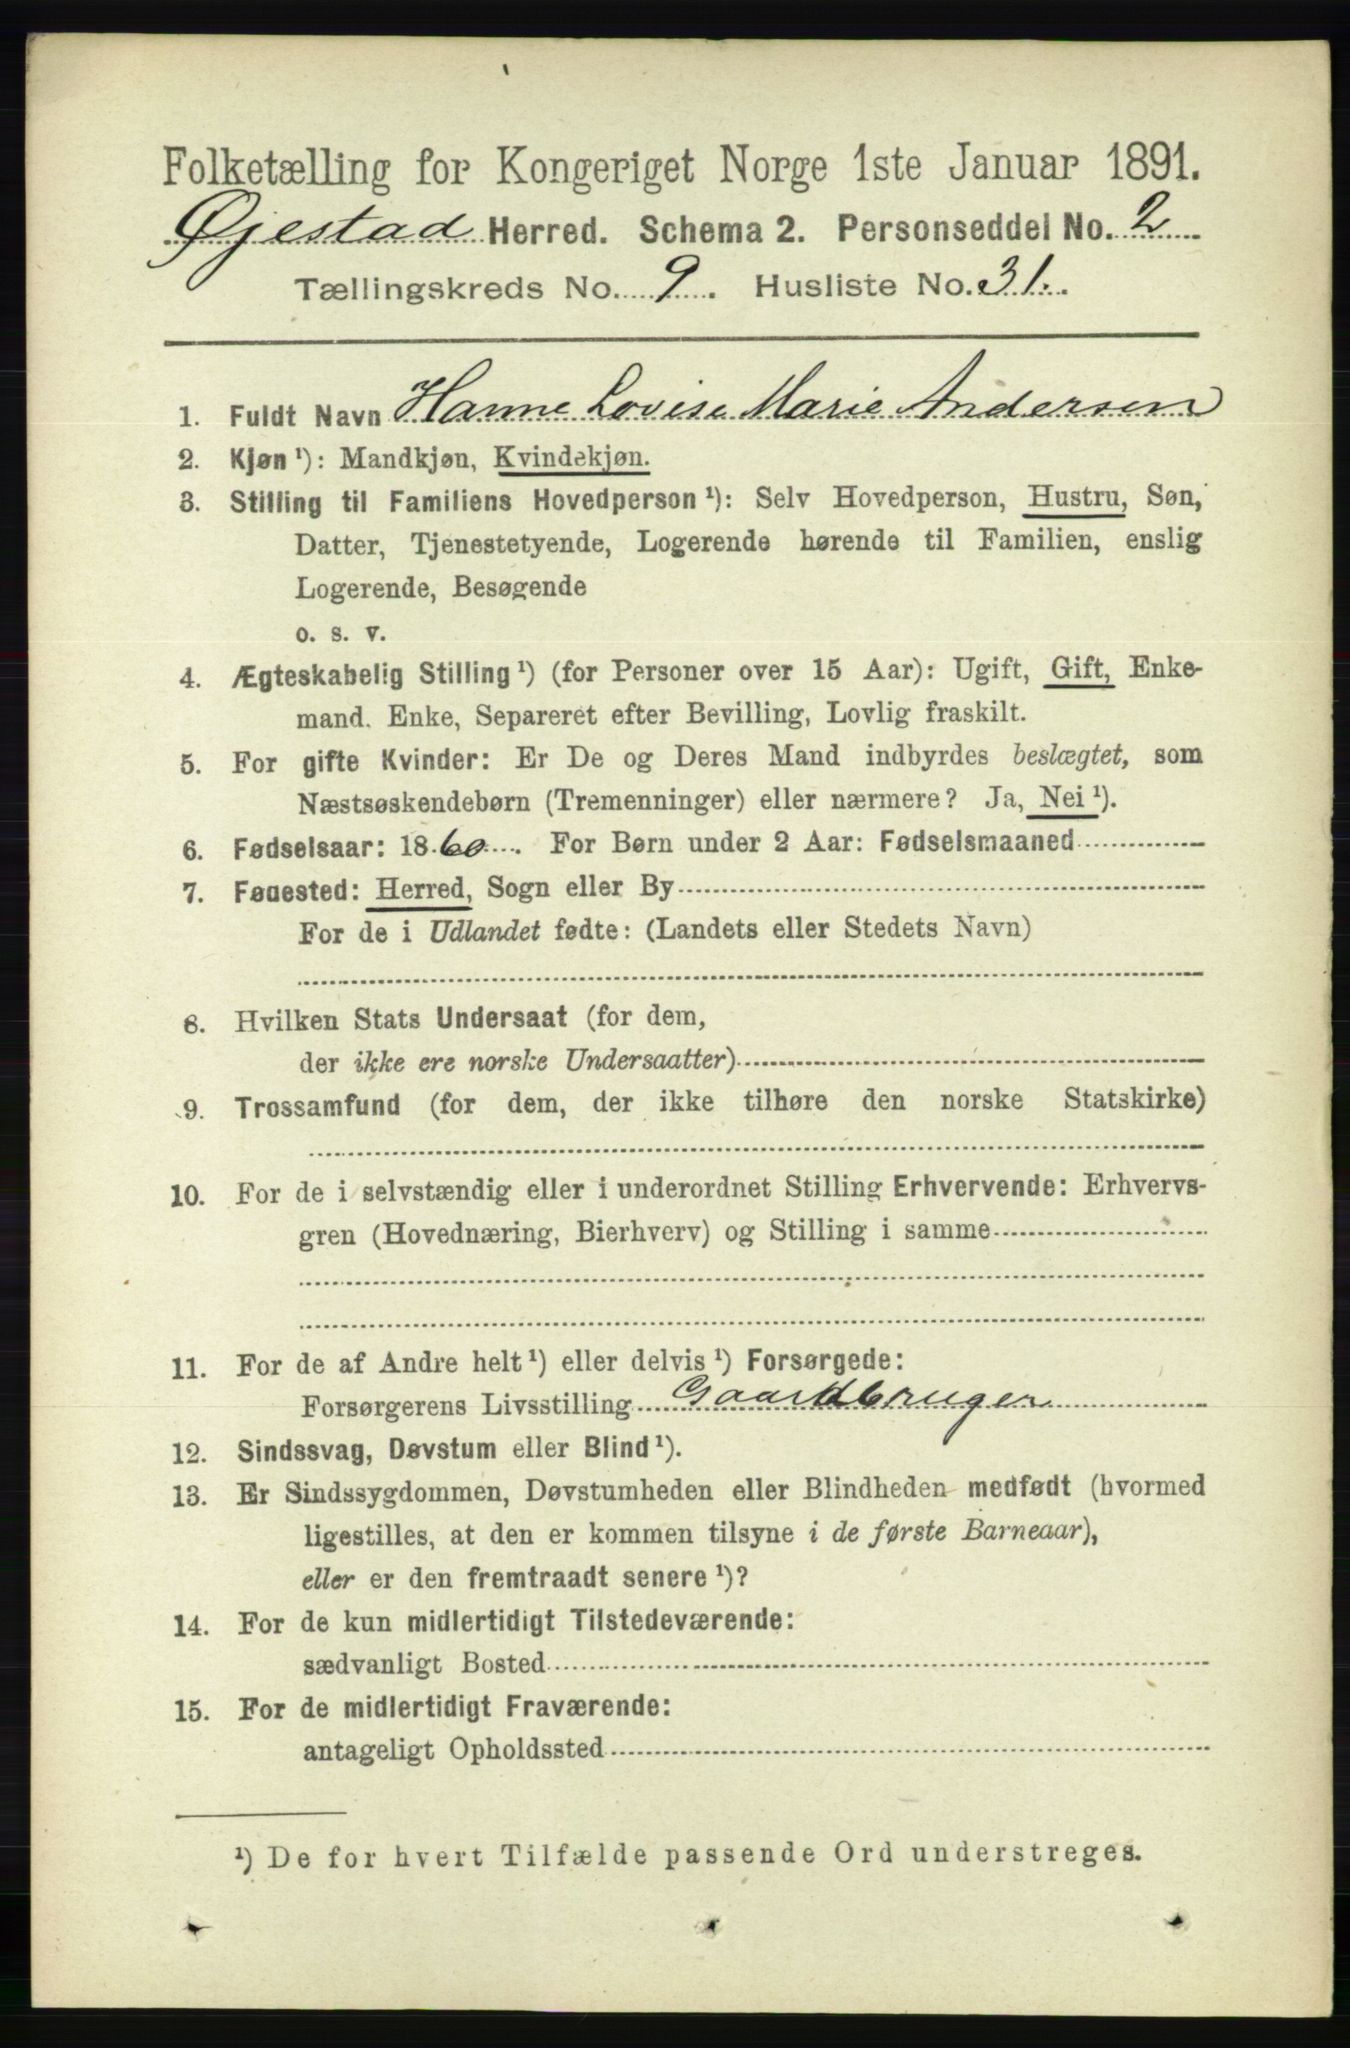 Folketælling for Kongeriget Norge 1ste Januar 1891.
Øjestad Herred. Schema 2. Personseddel No. 2
Tællingskreds No. 9. Husliste No. 31.
1. Fuldt Navn Hanne Lovise Marie Andersen
2. Kjøn ¹): Mandkjøn, Kvindekjøn.
3. Stilling til Familiens Hovedperson ¹): Selv Hovedperson, Hustru, Søn,
Datter, Tjenestetyende, Logerende hørende til Familien, enslig
Logerende, Besøgende
o. s. v.
4. Ægteskabelig Stilling ¹) (for Personer over 15 Aar): Ugift, Gift, Enke-
mand. Enke, Separeret efter Bevilling, Lovlig fraskilt.
5. For gifte Kvinder: Er De og Deres Mand indbyrdes beslægtet, som
Næstsøskendebørn (Tremenninger) eller nærmere? Ja, Nei ¹).
6. Fødselsaar: 1860. For Børn under 2 Aar: Fødselsmaaned
7. Fødested: Herred, Sogn eller By
For de i Udlandet fødte: (Landets eller Stedets Navn)
8. Hvilken Stats Undersaat (for dem,
der ikke ere norske Undersaatter)
9. Trossamfund (for dem, der ikke tilhøre den norske Statskirke)
10. For de i selvstændig eller i underordnet Stilling Erhvervende: Erhvervs-
gren (Hovednæring, Bierhverv) og Stilling i samme
11. For de af Andre helt ¹) eller delvis ¹) Forsørgede:
Forsørgerens Livsstilling Gaardbruger
12. Sindssvag, Døvstum eller Blind ¹).
13. Er Sindssygdommen, Døvstumheden eller Blindheden medfødt (hvormed
ligestilles, at den er kommen tilsyne i de første Barneaar),
eller er den fremtraadt senere ¹)?
14. For de kun midlertidigt Tilstedeværende:
sædvanligt Bosted
15. For de midlertidigt Fraværende:
antageligt Opholdssted
¹) De for hvert Tilfælde passende Ord understreges.